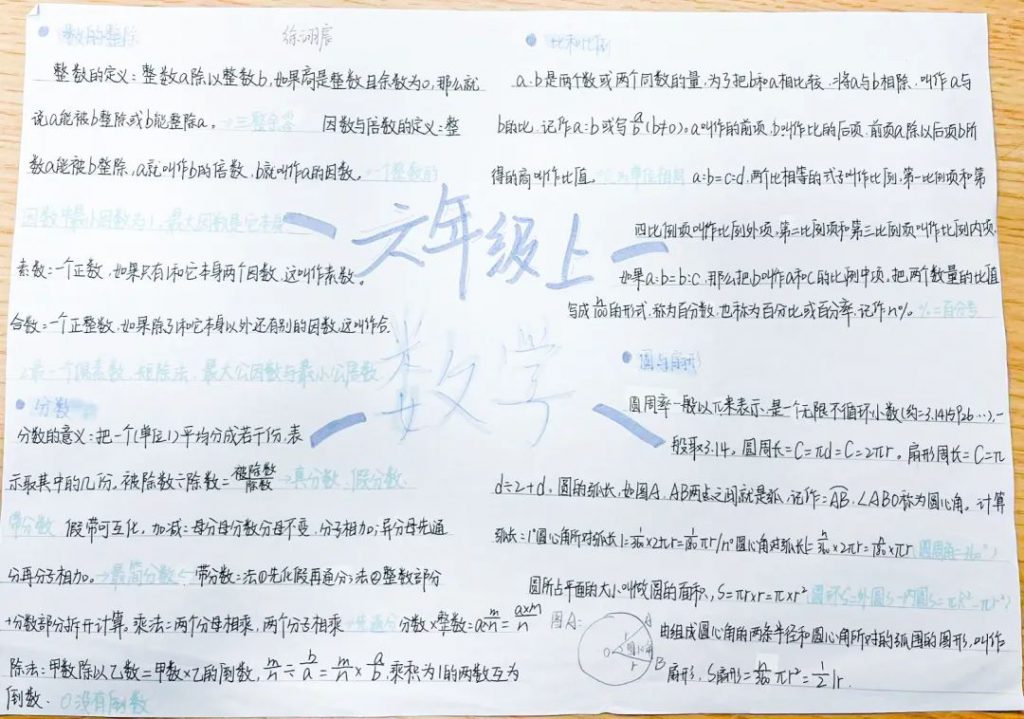 数的整除
练润辰
整数的定义：整数a除以整数b，如果商是整数且余数为0，那么就
说a能被b整除或b能整除a。→三整余零 因数与倍数的定义：整
数a能被b整除，a就叫作b的倍数，b就叫作a的因数。→一个整数的
因数中最小因数为1，最大因数是它本身
素数：一个正数，如果只有1和它本身两个因数，这叫作素数。
合数：一个正整数，如果除了1和它本身以外还有别的因数，这叫作合.
2最一个偶素数，短除法，最大公因数与最小公倍数
六年级上
数学
分数
分数的意义：把一个(单位1)平均分成若干份，表
示取其中的几份。被除数÷除数=被除数/除数→真分数、假分数、
带分数 假带可互化，加减：母分母分数分母不变，分子相加；异分母先通
分再分子相加。→最简分数← 带分数：法①先化假再通分；法②整数部分
+分数部分拆开计算。乘法：两个分母相乘，两个分子相乘→先通分 分数×整数=a×m/n=a×m/n
除法：甲数除以乙数=甲数×乙的倒数，m/n÷b/a=m/n×a/b.乘积为1的两数互为
倒数. 0没有倒数
比和比例
a.b是两个数或两个同数的量，为了把b和a相比较，将a与b相除，叫作a与
b的比，记作a:b或写a/b(b≠0)。a叫作的前项，b叫作比的后项，前项a除以后项b所
得的商叫作比值。 单位相同 a:b=c:d，两个比相等的式子叫作比例，第一比例项和第
四比例项叫作比例外项，第二比例项和第三比例项叫作比例内项，
如果a:b=b:c，那么把b叫作a和c的比例中项，把两个数量的比值
写成n/100的形式，称为百分数，也称为百分比或百分率，记作n%。%=百分号
圆与扇形
圆周率一般以π来表示，是一个无限不循环小数(约=3.1415926…)，一
般取3.14。圆周长=C=πd=C=2πr。扇形周长=C=π
d÷2+d，圆的弧长，如图A，AB两点之间就是弧，记作=AB，∠ABO称为圆心角。计算
弧长=1°圆心角所对弧长l=1/360×2πr=1/180πr/n°圆心角对弧长l=n/360×2πr=n/180×πr(圆周角=360°)
圆所占平面的大小叫做圆的面积，S=πr×r=π×r² 圆环S=外圆S-内圆S=πR²-πr²)
图A:
A
r
O
r
B
由组成圆心角的两条半径和圆心角所对的弧围的图形，叫作
扇形，S扇形=n/360πr²=1/2lr.